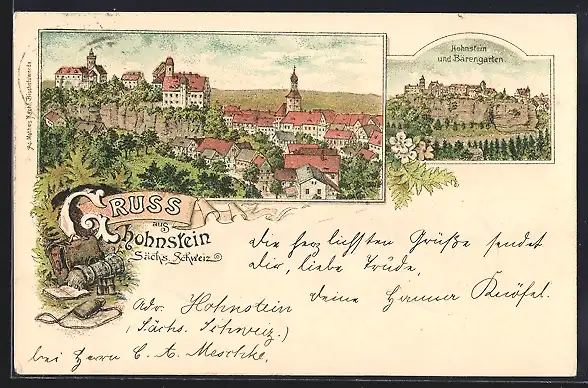 Hohnstein
und Bärengarten.
GRUSS
aus
Hohnstein
Sächs. Schweiz
Die herzlichsten Grüße sendet
Dir, liebe Trude,
deine Hanna Knöfel.
Adr. Hohnstein
(Sächs. Schweiz.)
bei Herrn C. A. Meschke.